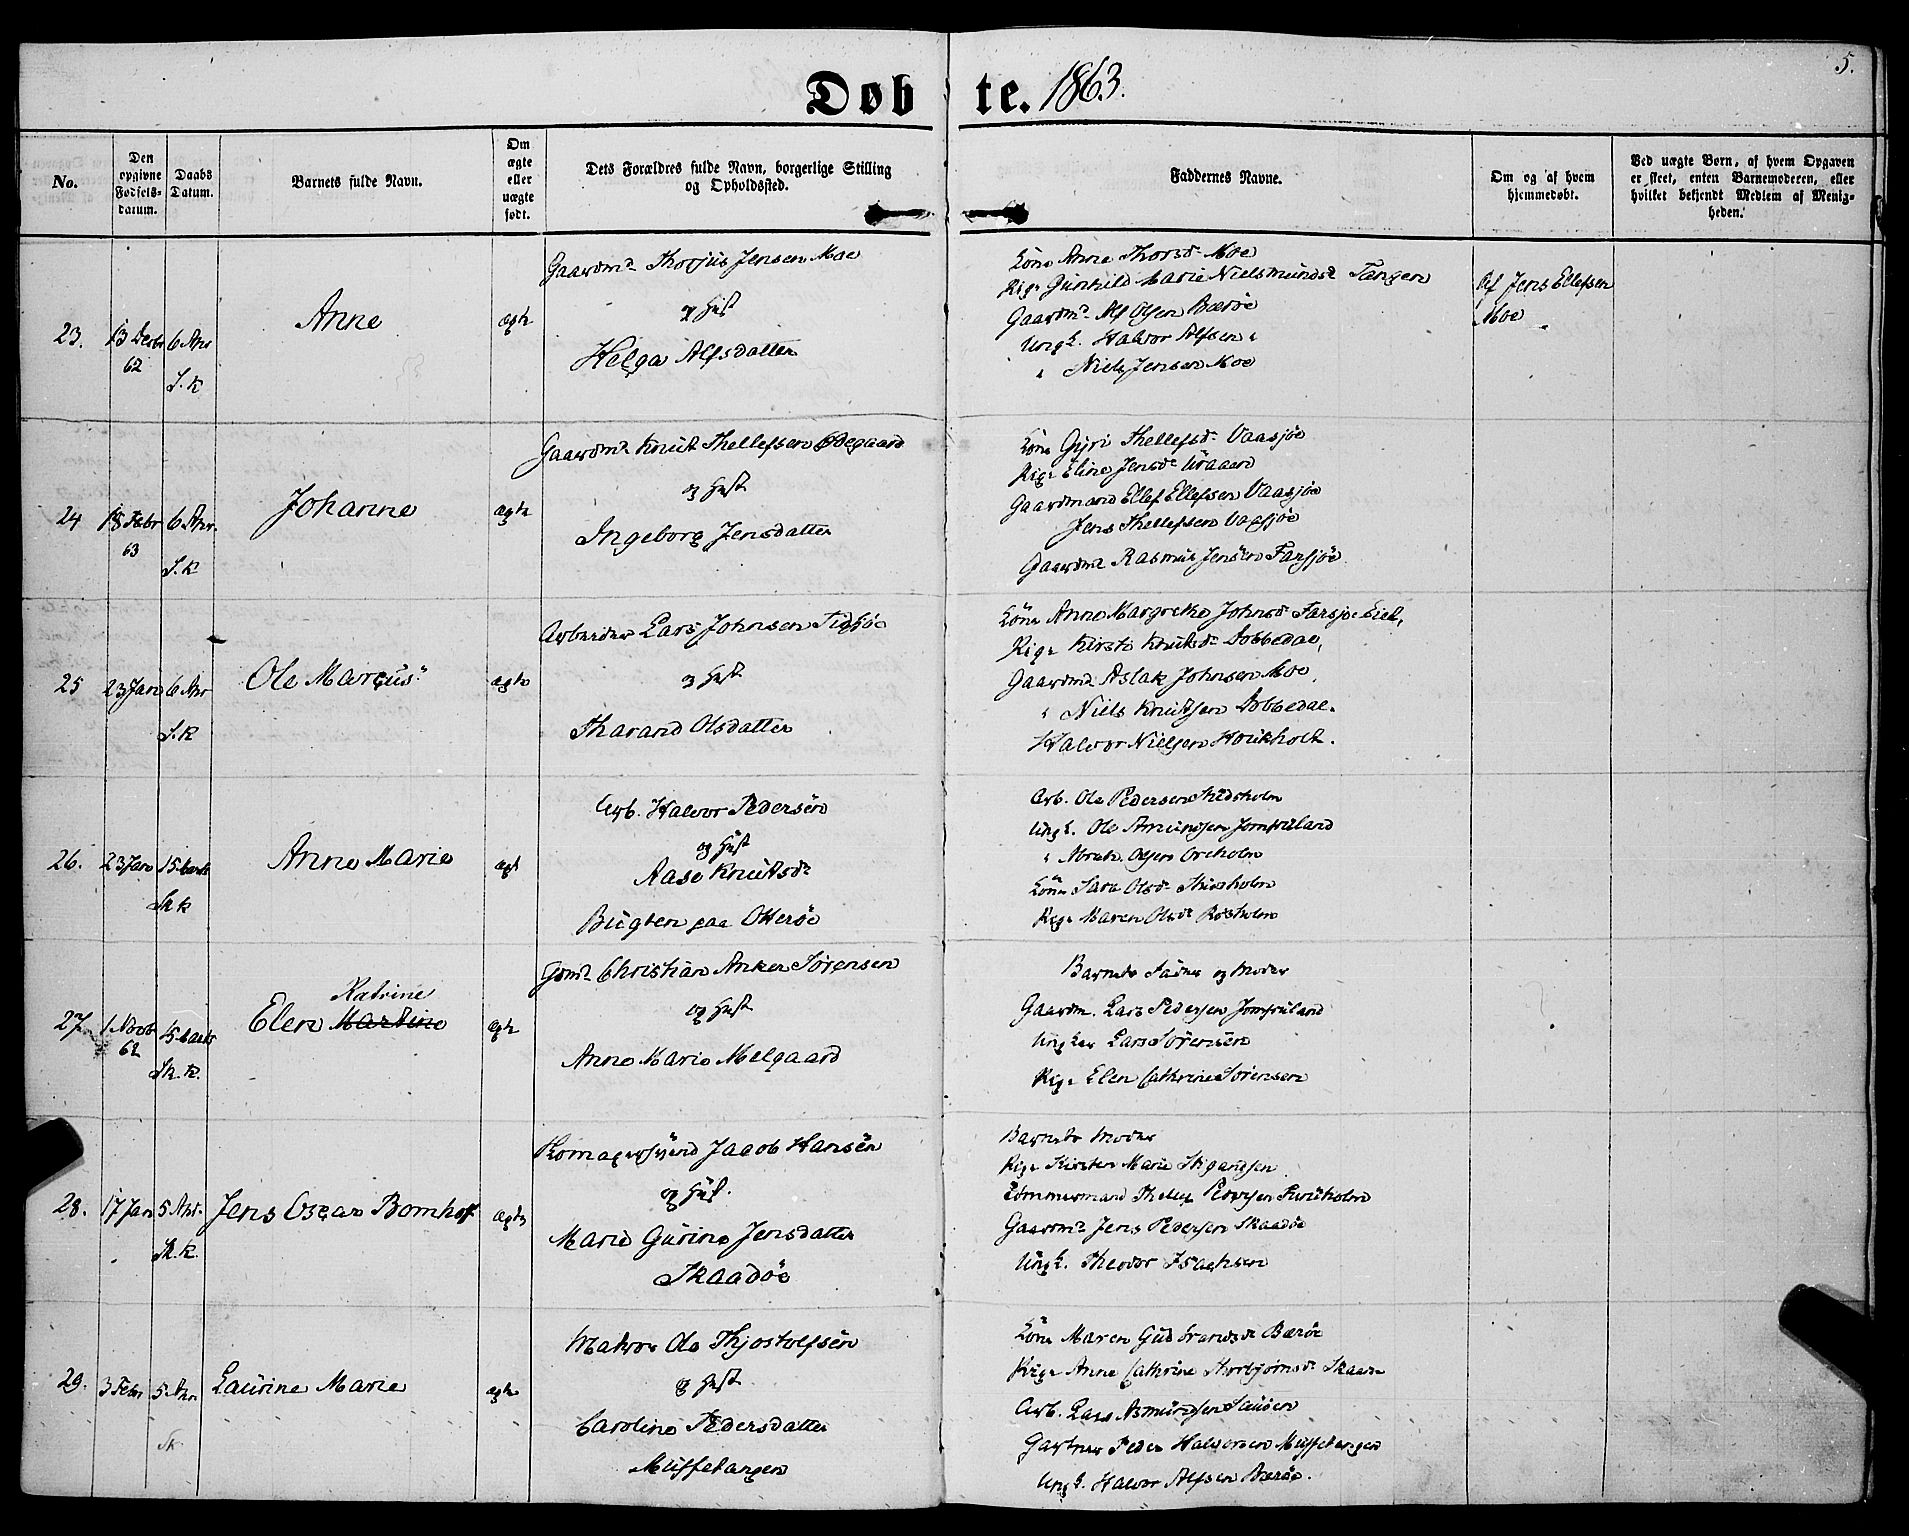 5.
Døbte. 1863.
No.
Den opgivne Fødsels-datum.
Daabs Datum.
Barnets fulde Navn.
Om ægte eller uægte født.
Dets Forældres fulde Navn, borgerlige Stilling og Opholdssted.
Faddernes Navne.
Om og af hvem hjemmedøbt.
Ved uægte Børn, af hvem Opgaven er skeet, enten Barnemoderen, eller hvilket bekjendt Medlem af Menigheden.
23. 13 Decbr 62 6 Apr S.k
Anne
ægte
Gaardmd Thorjus Jensen Moe
og Hust
Helga Alfsdatter
Kone Anne Thorsd Moe
Pige Gunhild Marie Nielsmundsd Tangen
Gaardmd Alf Olsen Barøe
Ungk. Halvor Alfsen "
" Niels Jensen Moe
Af Jens Ellefsen
Moe
24 18 Febr 63 6 Apr. S.k
Johanne
ægte
Gaardmd Knut Thellefsen Ødegaard
og Hust
Ingeborg Jensdatter
Kone Gyri Thellefsd Vaasjøe
Pige Eline Jensd
Gaardmand Ellef Ellefsen Vaasjøe
Jens Thellefsen Vaasjøe
Gaardmd Rasmus Jensen Farsjøe
25 23 Jan 6 Apr S.k
Ole Marcus
ægte
Arbeider Lars Johnsen
og Hust
Tharand Olsdatter
Kone Anne Margrethe Johnsd Farsjøe Eie,
Pige Kirsti Knutsd Dobbedal,
Gaardmd Aslak Johnsen Moe,
" Niels Knutsen Dobbedal.
Halvor Nielsen Houkholt.
26. 23 Jan 15 Marts Sk k
Anne Marie
ægt
Arb. Halvor Pedersen
og Hust
Aase Knutsd
Bugten paa Otterøe
Arb. Ole Pedersen
Ungk. Ole Amundsen Jomfruland
" Olsen
Kone Sara Olsd
Pige Maren Olsd
27. 1 Novb 62 15 Marts Sk. k.
Katrine
Elen Martine
ægte
Gdmd Christian Anker Sørensen
og Hust
Anne Marie Melgaard
Barnets Fader og Moder
Gaardm. Lars Pedersen Jomfruland
Ungkar Lars Sørensen
Pige Elen Cathrine Sørensen
28. 17 Jan 5 Apr. Sk. k.
Jens Oscar Bomhof
ægte
Jacob Hansen
og Hust.
Marie Gurine Jensdatter
Skaadøe
Barnets Moder
Pige Kirsten Marie Stigandsen
Tømmermand Thellef Pedersen
Gaardmd Jens Pedersen Skaadøe
Ungk. Theodor Isachsen
29. 3 Febr 5 Apr Sk
Laurine Marie
ægte
Matros Ole Thjostolfsen
og Hust
Caroline Pedersdatter
Muffetangen
Kone Maren Gudbrandsd Barøe
Pige Anne Cathrine Thorbjørnsd Skaadøe
Arb. Lars Asmundsen
Gartner Peder Halvorsen Muffetangen
Ungk. Halvor Alfsen Barøe.